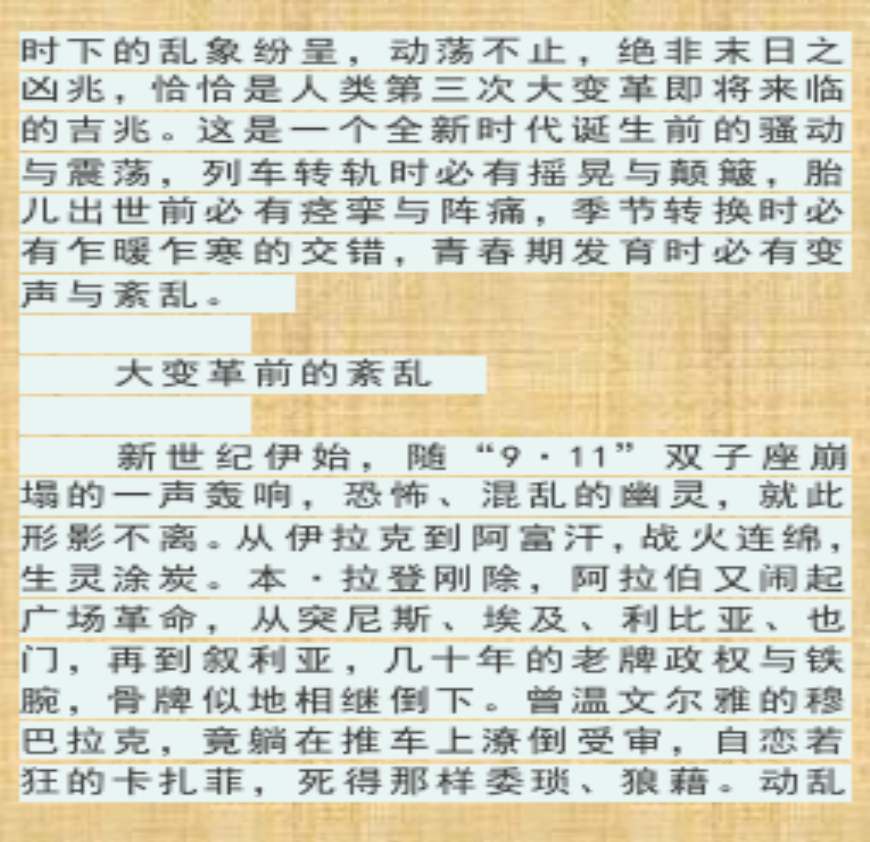 时下的乱象纷呈，动荡不止，绝非末日之
凶兆，恰恰是人类第三次大变革即将来临
的吉兆。这是一个全新时代诞生前的骚动
与震荡，列车转轨时必有摇晃与颠簸，胎
儿出世前必有痉挛与阵痛，季节转换时必
有乍暖乍寒的交错，青春期发育时必有变
声与紊乱。
大变革前的紊乱
新世纪伊始，随“9·11”双子座崩
塌的一声轰响，恐怖、混乱的幽灵，就此
形影不离。从伊拉克到阿富汗，战火连绵，
生灵涂炭。本·拉登刚除，阿拉伯又闹起
广场革命，从突尼斯、埃及、利比亚、也
门，再到叙利亚，几十年的老牌政权与铁
腕，骨牌似地相继倒下。曾温文尔雅的穆
巴拉克，竟躺在推车上潦倒受审，自恋若
狂的卡扎菲，死得那样委琐、狼藉。动乱